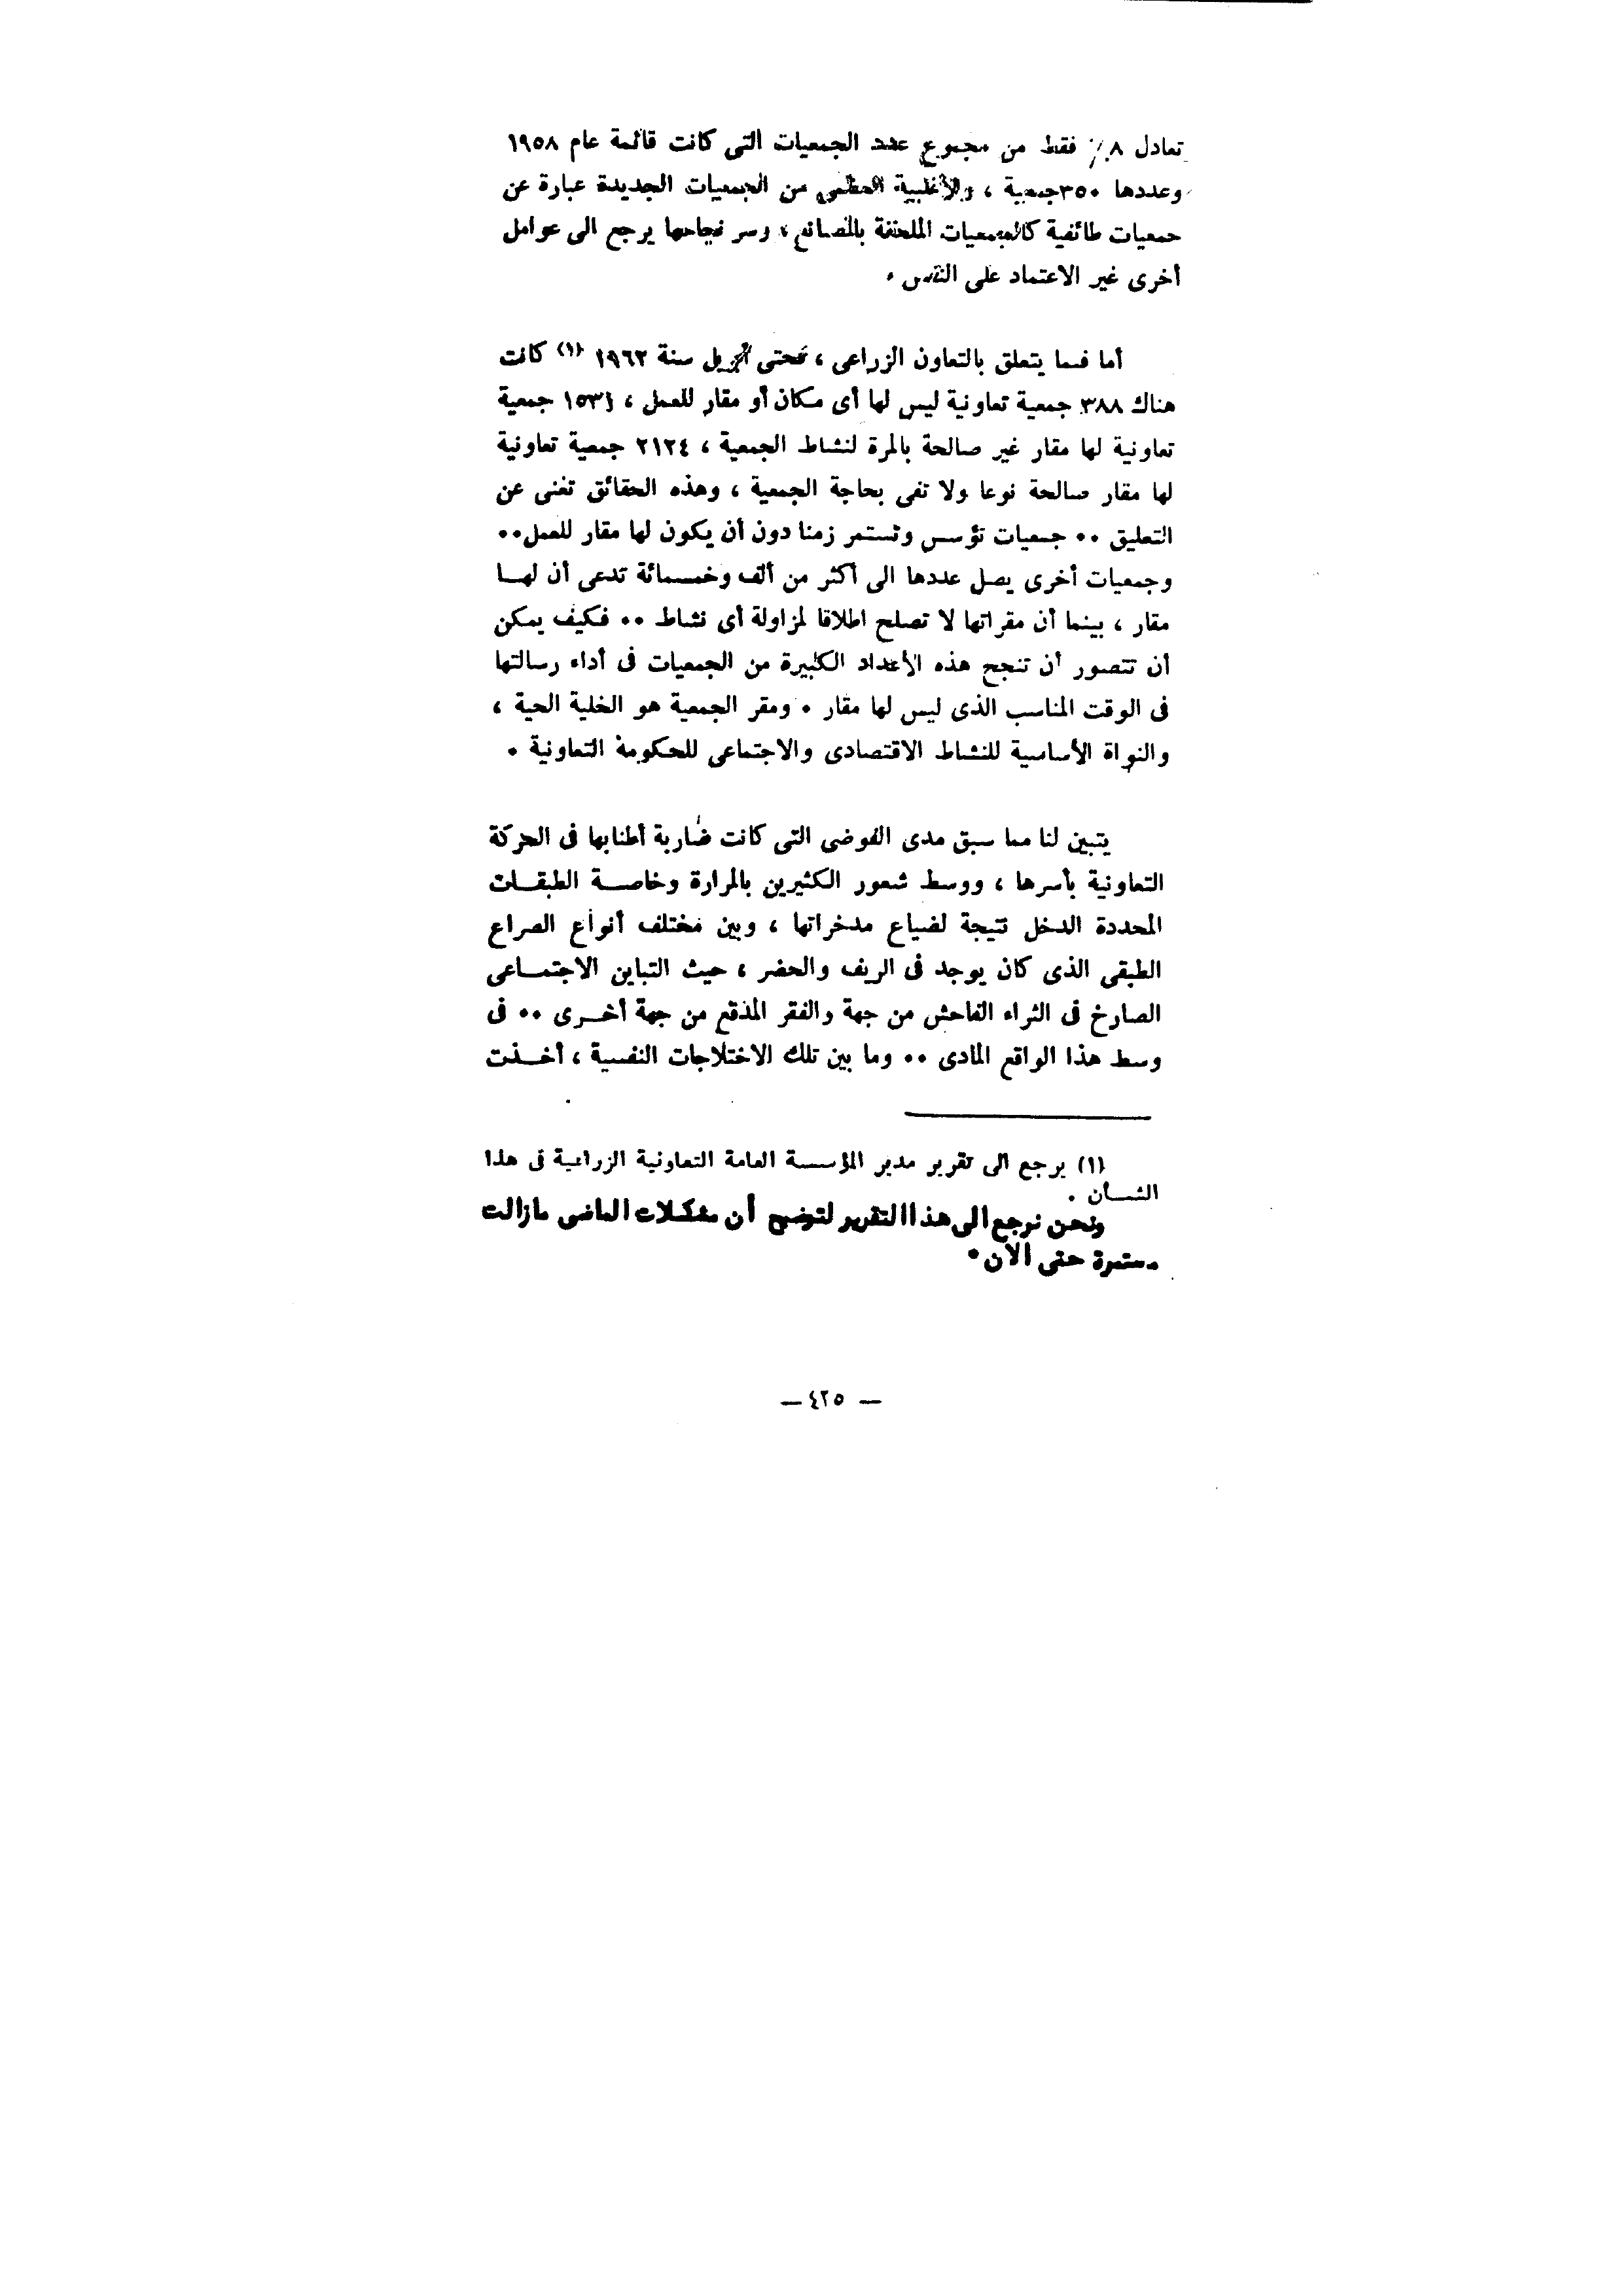 تعادل ٨٪ فقط من مجموع عدد الجمعيات التى كانت قائمة عام ١٩٥٨
وعددها ٣٥٠ جمعية ، والأغلبية العظمى من الجمعيات الجديدة عبارة عن
جمعيات طائفية كالجمعيات الملحقة بالمصانع ، وسر نجاحها يرجع الى عوامل
أخرى غير الاعتماد على النفس .
أما فيما يتعلق بالتعاون الزراعى ، فحتى ابريل سنة ١٩٦٢ (١) كانت
هناك ٣٨٨ جمعية تعاونية ليس لها أى مكان أو مقار للعمل ، ١٥٣١ جمعية
تعاونية لها مقار غير صالحة بالمرة لنشاط الجمعية ، ٢١٢٤ جمعية تعاونية
لها مقار صالحة نوعا ولا تفى بحاجة الجمعية ، وهذه الحقائق تغنى عن
التعليق .. جمعيات تؤسس وتستمر زمنا دون أن يكون لها مقار للعمل..
وجمعيات أخرى يصل عددها الى أكثر من ألف وخمسمائة تدعى أن لهــا
مقار ، بينما أن مقراتها لا تصلح اطلاقا لمزاولة أى نشاط .. فكيف يمكن
أن تتصور أن تنجح هذه الأعداد الكبيرة من الجمعيات فى أداء رسالتها
فى الوقت المناسب الذى ليس لها مقار . ومقر الجمعية هو الخلية الحية ،
والنواة الأساسية للنشاط الاقتصادى والاجتماعى للحكومة التعاونية .
يتبين لنا مما سبق مدى الفوضى التى كانت ضاربة أطنابها فى الحركة
التعاونية بأسرها ، ووسط شعور الكثيرين بالمرارة وخاصــة الطبقــات
المحددة الدخل نتيجة لضياع مدخراتها ، وبين مختلف أنواع الصراع
الطبقى الذى كان يوجد فى الريف والحضر ، حيث التباين الاجتمــاعى
الصارخ فى الثراء الفاحش من جهة والفقر المدقع من جهة أخــرى .. فى
وسط هذا الواقع المادى .. وما بين تلك الاختلاجات النفسية ، أخــذت
(١) يرجع الى تقرير مدير المؤسسة العامة التعاونية الزراعية فى هذا
الشــأن .
ونحن نرجع الى هذا التقرير لتوضيح أن مشكلات الماضى مازالت
مستمرة حتى الان .
— ٤٢٥ —